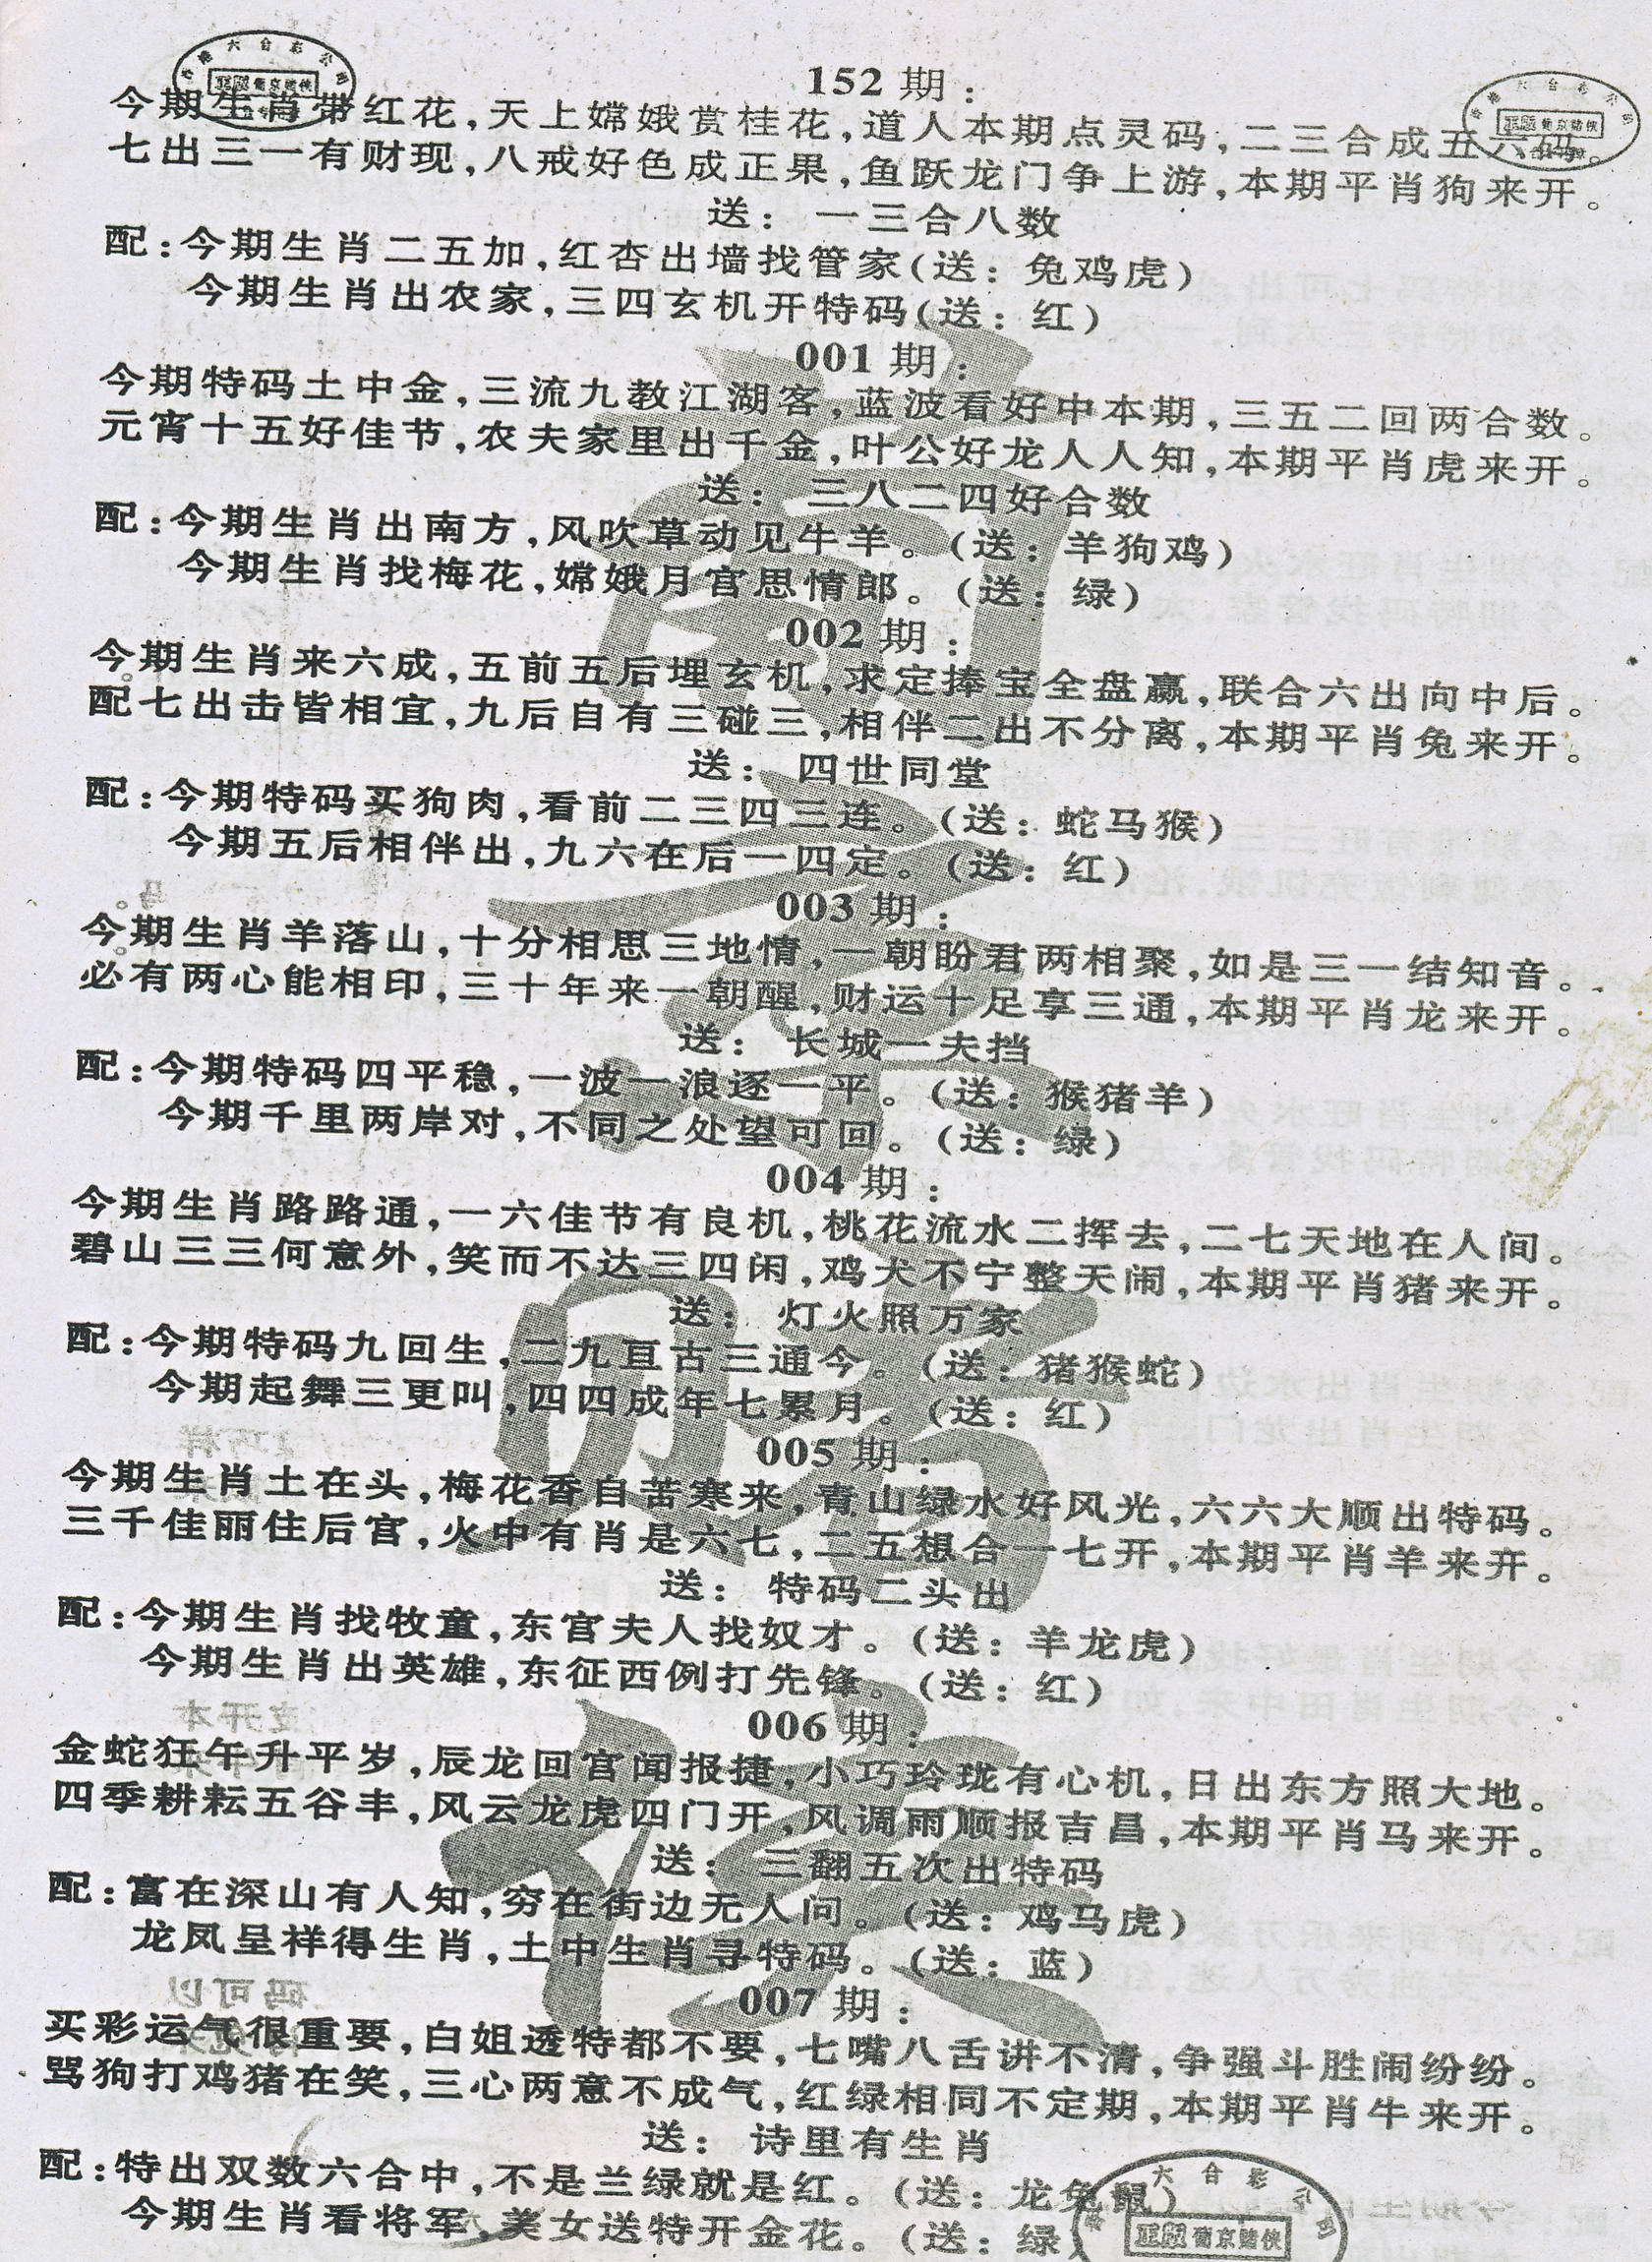 152 期：
今期生肖带红花，天上嫦娥赏桂花，道人本期点灵码，二三合成五六码。
七出三一有财现，八戒好色成正果，鱼跃龙门争上游，本期平肖狗来开。
送： 一三合八数
配：今期生肖二五加，红杏出墙找管家（送：兔鸡虎）
今期生肖出农家，三四玄机开特码（送：红）
001 期：
今期特码土中金，三流九教江湖客，蓝波看好中本期，三五二回两合数。
元宵十五好佳节，农夫家里出千金，叶公好龙人人知，本期平肖虎来开。
送： 三八二四好合数
配：今期生肖出南方，风吹草动见牛羊。（送：羊狗鸡）
今期生肖找梅花，嫦娥月宫思情郎。（送：绿）
002 期：
今期生肖来六成，五前五后埋玄机，求定捧宝全盘赢，联合六出向中后。
配七出击皆相宜，九后自有三碰三，相伴二出不分离，本期平肖兔来开。
送： 四世同堂
配：今期特码买狗肉，看前二三四三连。（送：蛇马猴）
今期五后相伴出，九六在后一四定。（送：红）
003 期：
今期生肖羊落山，十分相思三地情，一朝盼君两相聚，如是三一结知音。
必有两心能相印，三十年来一朝醒，财运十足享三通，本期平肖龙来开。
送： 长城一夫挡
配：今期特码四平稳，一波一浪逐一平。（送：猴猪羊）
今期千里两岸对，不同之处望可回。（送：绿）
004 期：
今期生肖路路通，一六佳节有良机，桃花流水二挥去，二七天地在人间。
碧山三三何意外，笑而不达三四闲，鸡犬不宁整天闹，本期平肖猪来开。
送： 灯火照万家
配：今期特码九回生，二九亘古三通今。（送：猪猴蛇）
今期起舞三更叫，四四成年七累月。（送：红）
005 期：
今期生肖土在头，梅花香自苦寒来，青山绿水好风光，六六大顺出特码。
三千佳丽住后宫，火中有肖是六七，二五想合一七开，本期平肖羊来开。
送： 特码二头出
配：今期生肖找牧童，东宫夫人找奴才。（送：羊龙虎）
今期生肖出英雄，东征西例打先锋。（送：红）
006 期：
金蛇狂午升平岁，辰龙回宫闻报捷，小巧玲珑有心机，日出东方照大地。
四季耕耘五谷丰，风云龙虎四门开，风调雨顺报吉昌，本期平肖马来开。
送： 三翻五次出特码
配：富在深山有人知，穷在街边无人问。（送：鸡马虎）
龙凤呈祥得生肖，土中生肖寻特码。（送：蓝）
007 期：
买彩运气很重要，白姐透特都不要，七嘴八舌讲不清，争强斗胜闹纷纷。
骂狗打鸡猪在笑，三心两意不成气，红绿相同不定期，本期平肖牛来开。
送： 诗里有生肖
配：特出双数六合中，不是兰绿就是红。（送：龙兔鼠）
今期生肖看将军，美女送特开金花。（送：绿）
正版葡京赌侠